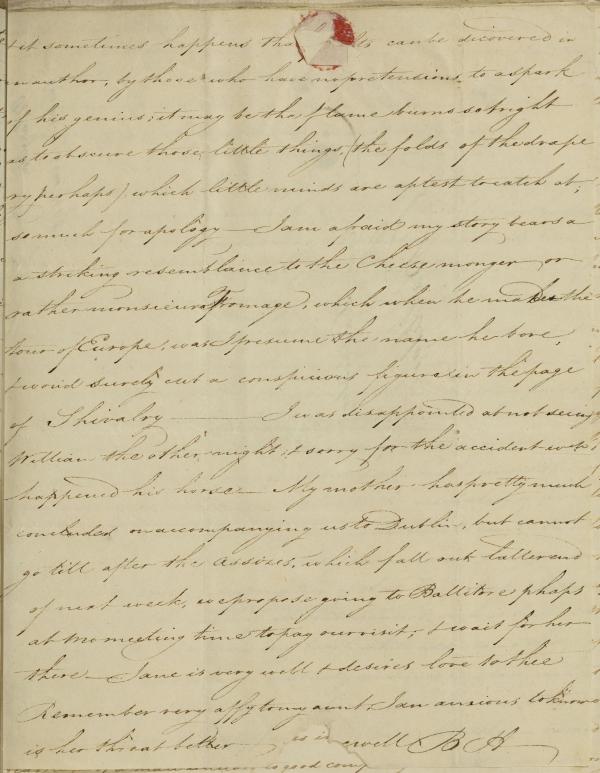 & it sometimes happens that faults can be dicovered in
an author, by those who have no pretensions to a spark
of his genius; it may be the flame burns so bright
as to obscure those little things, (the folds of the drape
ry perhaps) which little minds are aptest to catch at;
so much for apology — I am afraid my story bears a
a striking resemblance to the Cheese monger or
rather monsieur Fromage, which when he makes the
tour of Europe, was I presume the name he bore,
& would surely cut a conspicious figure in the page
of Shivalry — I was disappointed at not seeing
William the other night, & sorry for the accident wch
happened his horse — My mother has pretty much
concluded on accompanying us to Dublin, but cannot
go till after the assizes, which fall out latter end
of next week, we propose going to Ballitore phaps
at Mo meeting time to pay our visit, & wait for her
there — Jane is very well & desires love to thee
Remember me very affy to my aunt, I am anxious to know
is her throat better — as is ewell B H
good comp